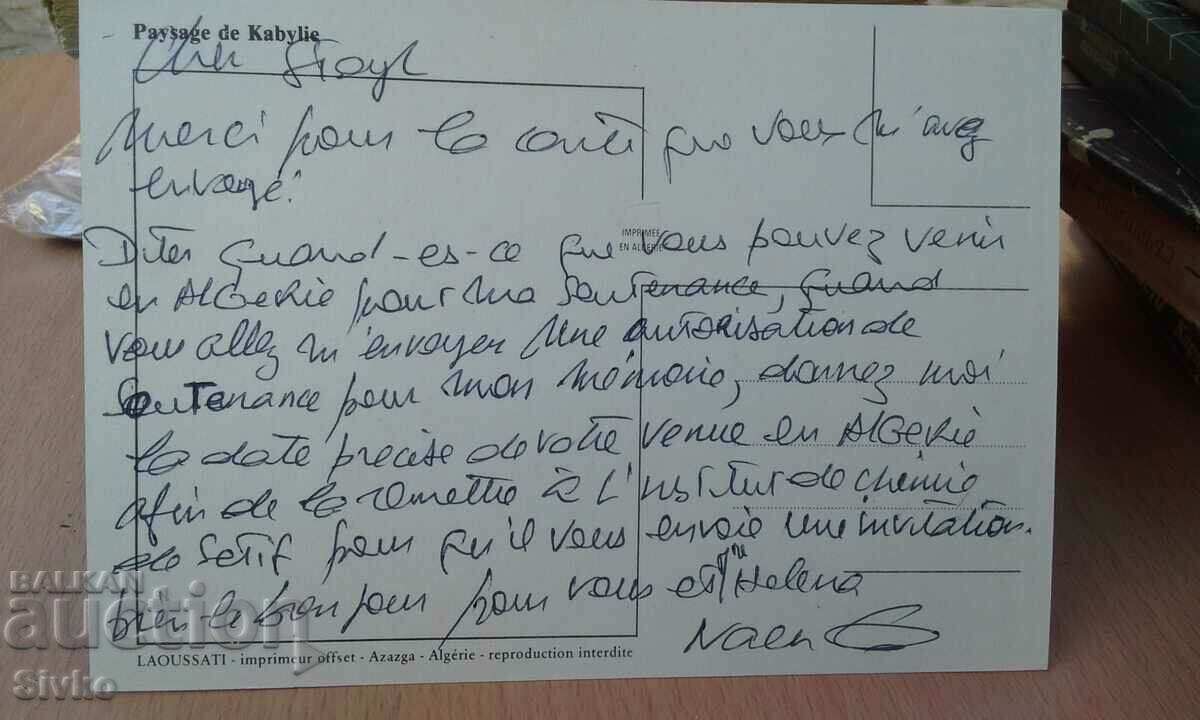 Paysage de Kabylie
Cher
Merci pour la carte que vous m'avez
envoyé.
IMPRIMÉE
EN ALGERIE
Dites quand-es-ce que vous pouvez venir
en ALGERIE pour ma soutenance, quand
vous allez m'envoyer une autorisation de
souTenance pour mon mémoire, donnez moi
la date precise de votre venue en ALGERIE
afin de la remettre à L'INSTITUT de chimie
de Setif pour qu'il vous envoie une invitation.
bien le bonjour pour vous et Mme Helena
LAOUSSATI - imprimeur offset - Azazga - Algérie - reproduction interdite
BALKAN
auction
Sivko